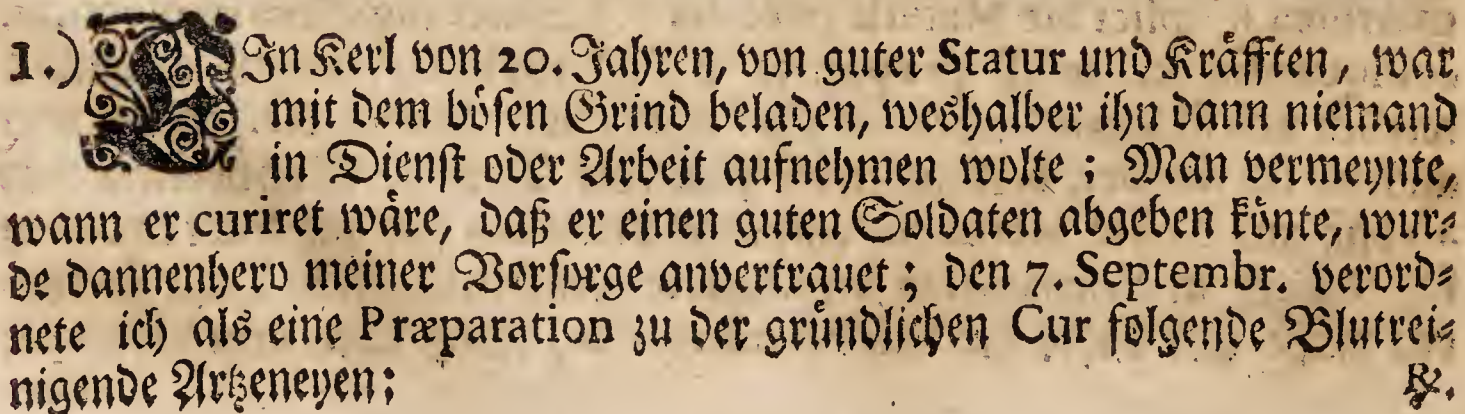 1.) EIn Kerl von 20. Jahren, von guter Statur und Kräfften, war
mit dem bösen Grind beladen, weshalber ihn dann niemand
in Dienst oder Arbeit aufnehmen wolte; Man vermeynte,
wann er curiret wäre, daß er einen guten Soldaten abgeben könte, wur-
de dannenhero meiner Vorsorge anvertrauet; den 7. Septembr. verord-
nete ich als eine Præparation zu der gründlichen Cur folgende Blutrei-
nigende Artzeneyen; ℞.